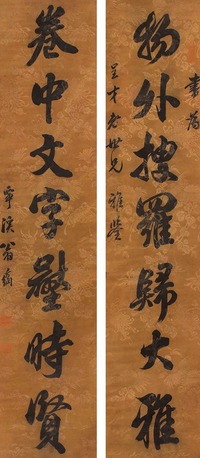 物外搜羅歸大雅
書為
呈才老世兄雅鑒
卷中文字壓時賢
翁